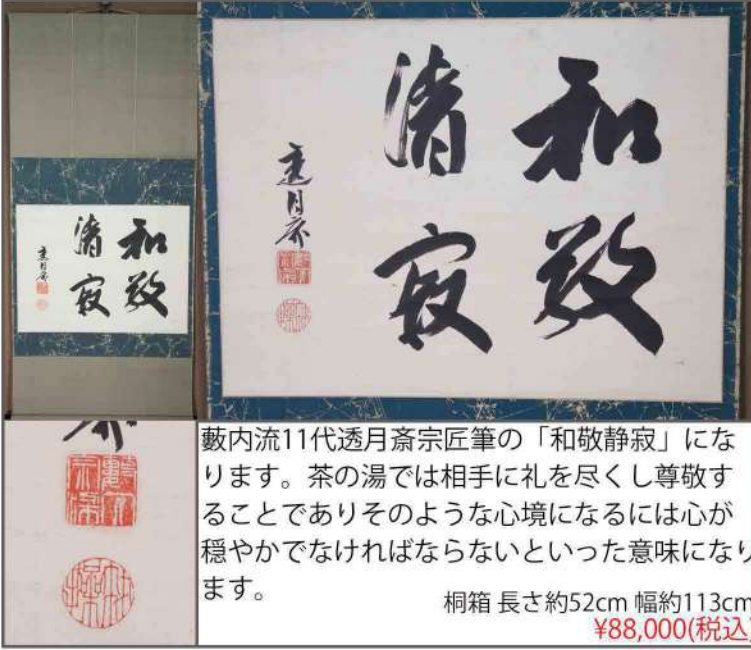 和敬
清寂
透月斎
藪内流11代透月斎宗匠筆の「和敬静寂」にな
ります。茶の湯では相手に礼を尽くし尊敬す
ることでありそのような心境になるには心が
穏やかでなければならないといった意味になり
ます。
桐箱 長さ約52cm 幅約113cm
¥88,000(税込)